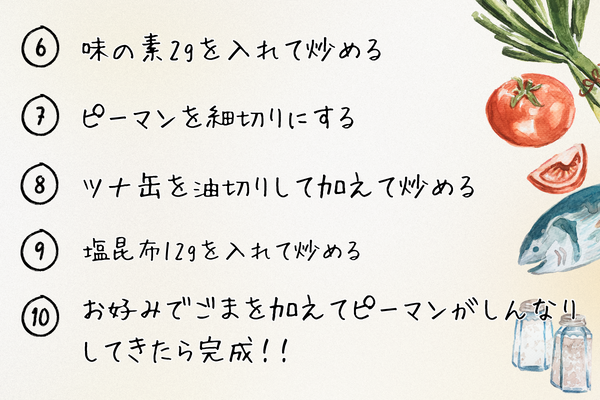 ⑥ 味の素2gを入れて炒める
⑦ ピーマンを細切りにする
⑧ ツナ缶を油切りして加えて炒める
⑨ 塩昆布12gを入れて炒める
⑩ お好みでごまを加えてピーマンがしんなり
してきたら完成！！